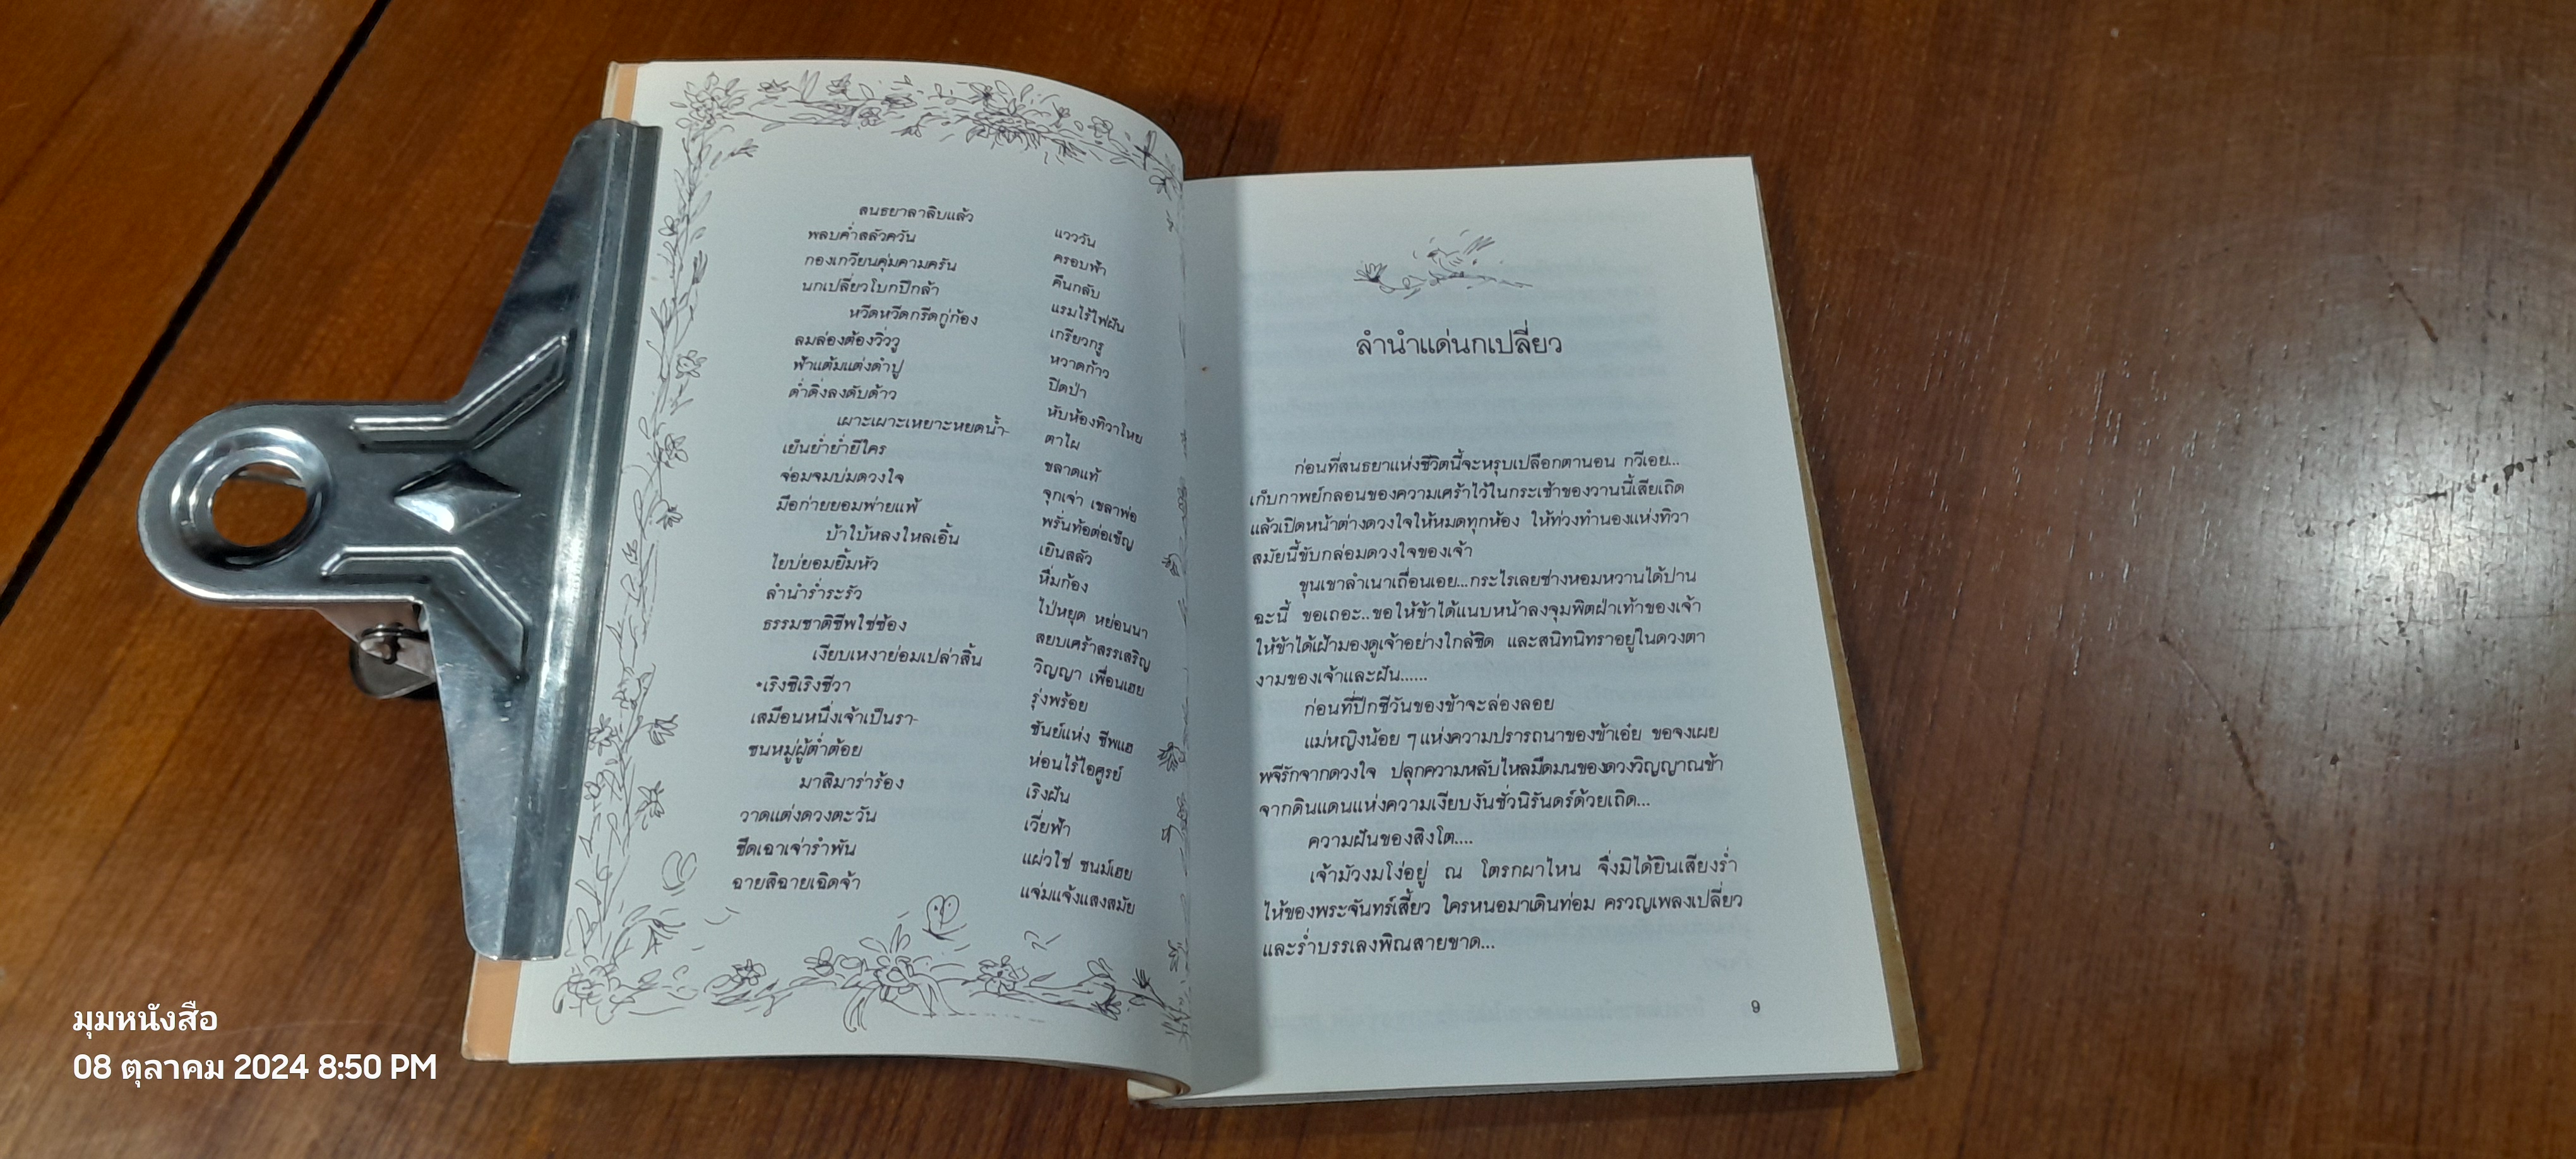 สนธยาลาลิบแล้ว แวววัน
พลบค่ำสลัวควัน ครอบฟ้า
กองเกวียนคุ่มคามครัน คืนกลับ
นกเปลี่ยวโบกปีกล้า แรมไร้ไฟฝัน
หวีดหวีดกรีดกู่ก้อง เกรียวกรู
ลมล่องต้องวิ่ววู หวาดก้าว
ฟ้าแต้มแต่งดำปู ปิดป่า
ค่ำดิ่งลงดับด้าว หับห้องทิวาไหย
เผาะเผาะเหยาะหยดน้ำ- ตาไผ
เย็นย่ำย่ำยีใคร ขลาดแท้
จ่อมจมบ่มดวงใจ จุกเจ่า เขลาพ่อ
มือก่ายยอมพ่ายแพ้ พรั่นท้อต่อเข็ญ
บ้าใบ้หลงใหลเอิ้น เยินสลัว
ไยบ่ยอมยิ้มหัว หึ่มก้อง
ลำนำร่ำระรัว ไป่หยุด หย่อนนา
ธรรมชาติชีพใช่ซ้อง สยบเศร้าสรรเสริญ
เงียบเหงาย่อมเปล่าสิ้น วิญญา เพื่อนเฮย
*เริงซิเริงชีวา รุ่งพร้อย
เสมือนหนึ่งเจ้าเป็นรา- ชันย์แห่ง ชีพแฮ
ชนหมู่ผู้ต่ำต้อย ห่อนไร้ไอศูรย์
มาสิมาร่าร้อง เริงฝัน
วาดแต่งดวงตะวัน เวี่ยฟ้า
ขีดเฉาเจ่ารำพัน แผ่วใช่ ชนม์เฮย
ฉายสิฉายเฉิดจ้า แจ่มแจ้งแสงสมัย
ลำนำแด่นกเปลี่ยว
ก่อนที่สนธยาแห่งชีวิตนี้จะหรุบเปลือกตานอน กวีเอย...
เก็บกาพย์กลอนของความเศร้าไว้ในกระเช้าของวานนี้เสียเถิด
แล้วเปิดหน้าต่างดวงใจให้หมดทุกห้อง ให้ท่วงทำนองแห่งทิวา
สมัยนี้ขับกล่อมดวงใจของเจ้า
ขุนเขาลำเนาเถื่อนเอย...กระไรเลยช่างหอมหวานได้ปาน
ฉะนี้ ขอเถอะ..ขอให้ข้าได้แนบหน้าลงจุมพิตฝ่าเท้าของเจ้า
ให้ข้าได้เฝ้ามองดูเจ้าอย่างใกล้ชิด และสนิทนิทราอยู่ในดวงตา
งามของเจ้าและฝัน......
ก่อนที่ปีกชีวันของข้าจะล่องลอย
แม่หญิงน้อย ๆ แห่งความปรารถนาของข้าเอ๋ย ขอจงเผย
พจีรักจากดวงใจ ปลุกความหลับไหลมืดมนของดวงวิญญาณข้า
จากดินแดนแห่งความเงียบงันชั่วนิรันดร์ด้วยเถิด...
ความฝันของสิงโต....
เจ้ามัวงมโง่อยู่ ณ โตรกผาไหน จึ่งมิได้ยินเสียงร่ำ
ไห้ของพระจันทร์เสี้ยว ใครหนอมาเดินท่อม ครวญเพลงเปลี่ยว
และร่ำบรรเลงพิณสายขาด...
9
มุมหนังสือ
08 ตุลาคม 2024 8:50 PM